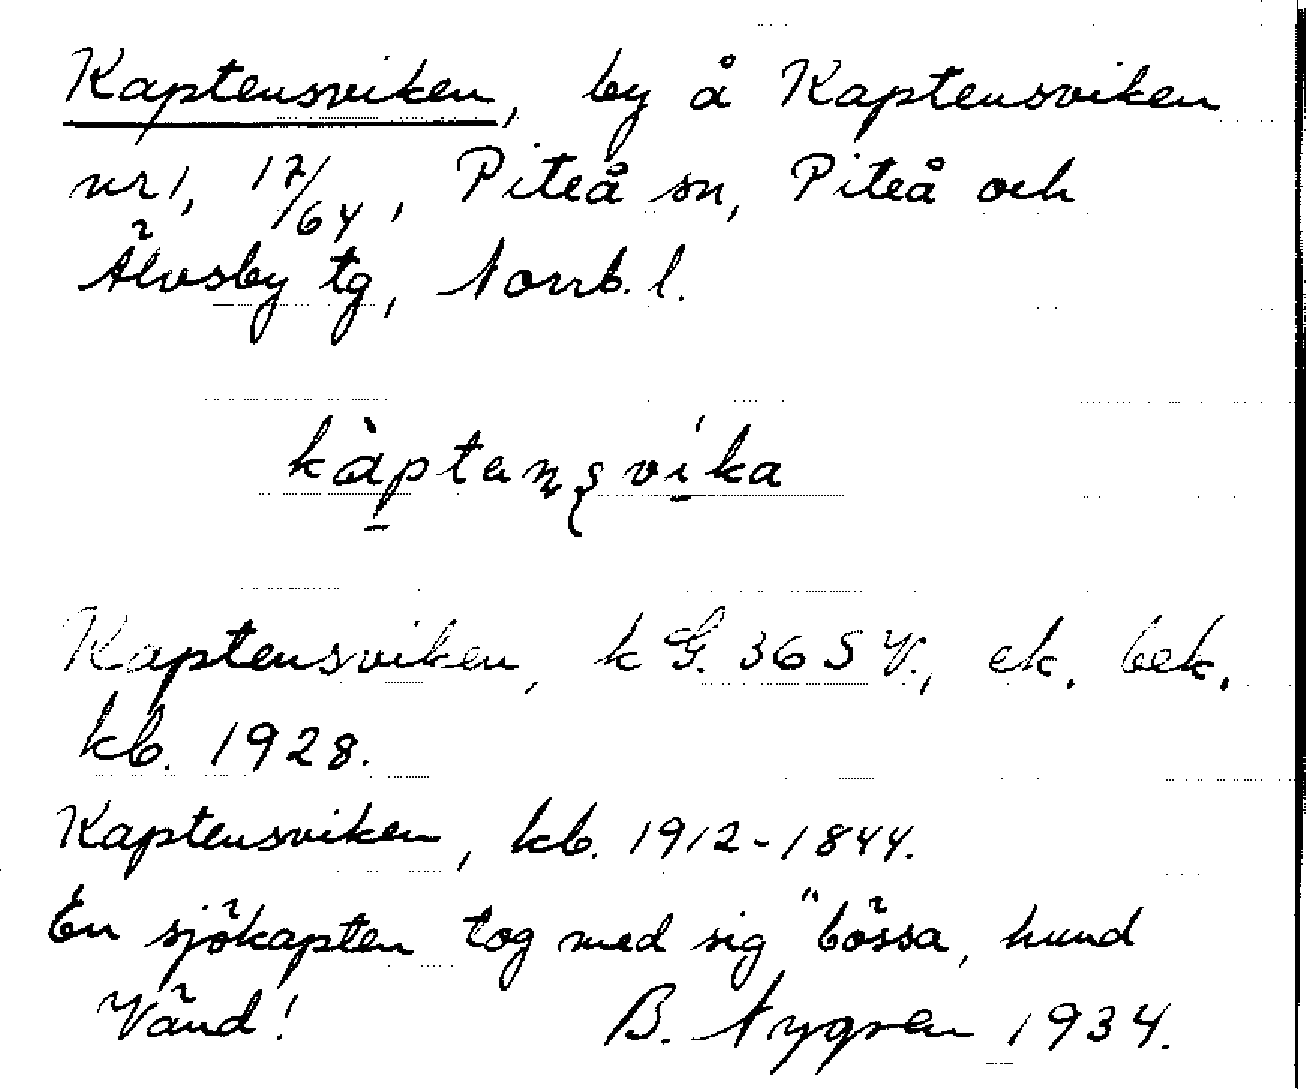 Kaptensviken, by å Kaptensviken
nr 1, 17/64, Piteå sn, Piteå och
Älvsby tg, Norrb. l.
kàptensvíka
Kaptensviken, k G. 36 S V., ek. bek.
kb. 1928.
Kaptensviken, kb. 1912-1844.
En sjökapten tog med sig "bössa, hund
Vänd! B. Nygren 1934.